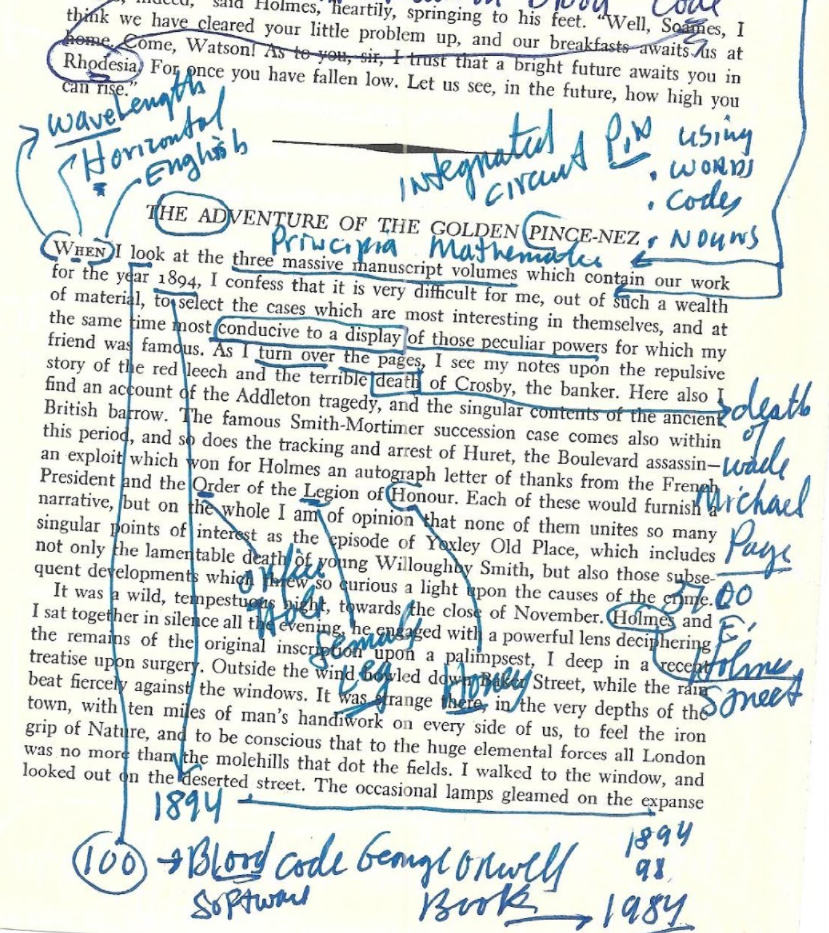 indeed," said Holmes, heartily, springing to his feet. "Well, Soames, I
Blood Code
think we have cleared your little problem up, and our breakfasts awaits us at
home. Come, Watson! As to you, sir, I trust that a bright future awaits you in
Rhodesia. For once you have fallen low. Let us see, in the future, how high you
can rise."
wavelength
Horizontal
English
Integrated
circuit
PIN
using
. words
. codes
. Nouns
THE ADVENTURE OF THE GOLDEN PINCE-NEZ
Principia Mathematic
WHEN I look at the three massive manuscript volumes which contain our work
for the year 1894, I confess that it is very difficult for me, out of such a wealth
of material, to select the cases which are most interesting in themselves, and at
the same time most conducive to a display of those peculiar powers for which my
friend was famous. As I turn over the pages, I see my notes upon the repulsive
story of the red leech and the terrible death of Crosby, the banker. Here also I
find an account of the Addleton tragedy, and the singular contents of the ancient
British barrow. The famous Smith-Mortimer succession case comes also within
this period, and so does the tracking and arrest of Huret, the Boulevard assassin—
an exploit which won for Holmes an autograph letter of thanks from the French
President and the Order of the Legion of Honour. Each of these would furnish a
narrative, but on the whole I am of opinion that none of them unites so many
singular points of interest as the episode of Yoxley Old Place, which includes
not only the lamentable death of young Willoughby Smith, but also those subse-
quent developments which threw so curious a light upon the causes of the crime.
It was a wild, tempestuous night, towards the close of November. Holmes and
I sat together in silence all the evening, he engaged with a powerful lens deciphering
the remains of the original inscription upon a palimpsest, I deep in a recent
treatise upon surgery. Outside the wind howled down Baker Street, while the rain
beat fiercely against the windows. It was strange there, in the very depths of the
town, with ten miles of man's handiwork on every side of us, to feel the iron
grip of Nature, and to be conscious that to the huge elemental forces all London
was no more than the molehills that dot the fields. I walked to the window, and
looked out on the deserted street. The occasional lamps gleamed on the expanse
death
of
wade
Michael
Page
3700
E.
Holmes
Street
female
Leg
Honey
1894
100 → Blood code George Orwell
Software
Book → 1984
1894
98